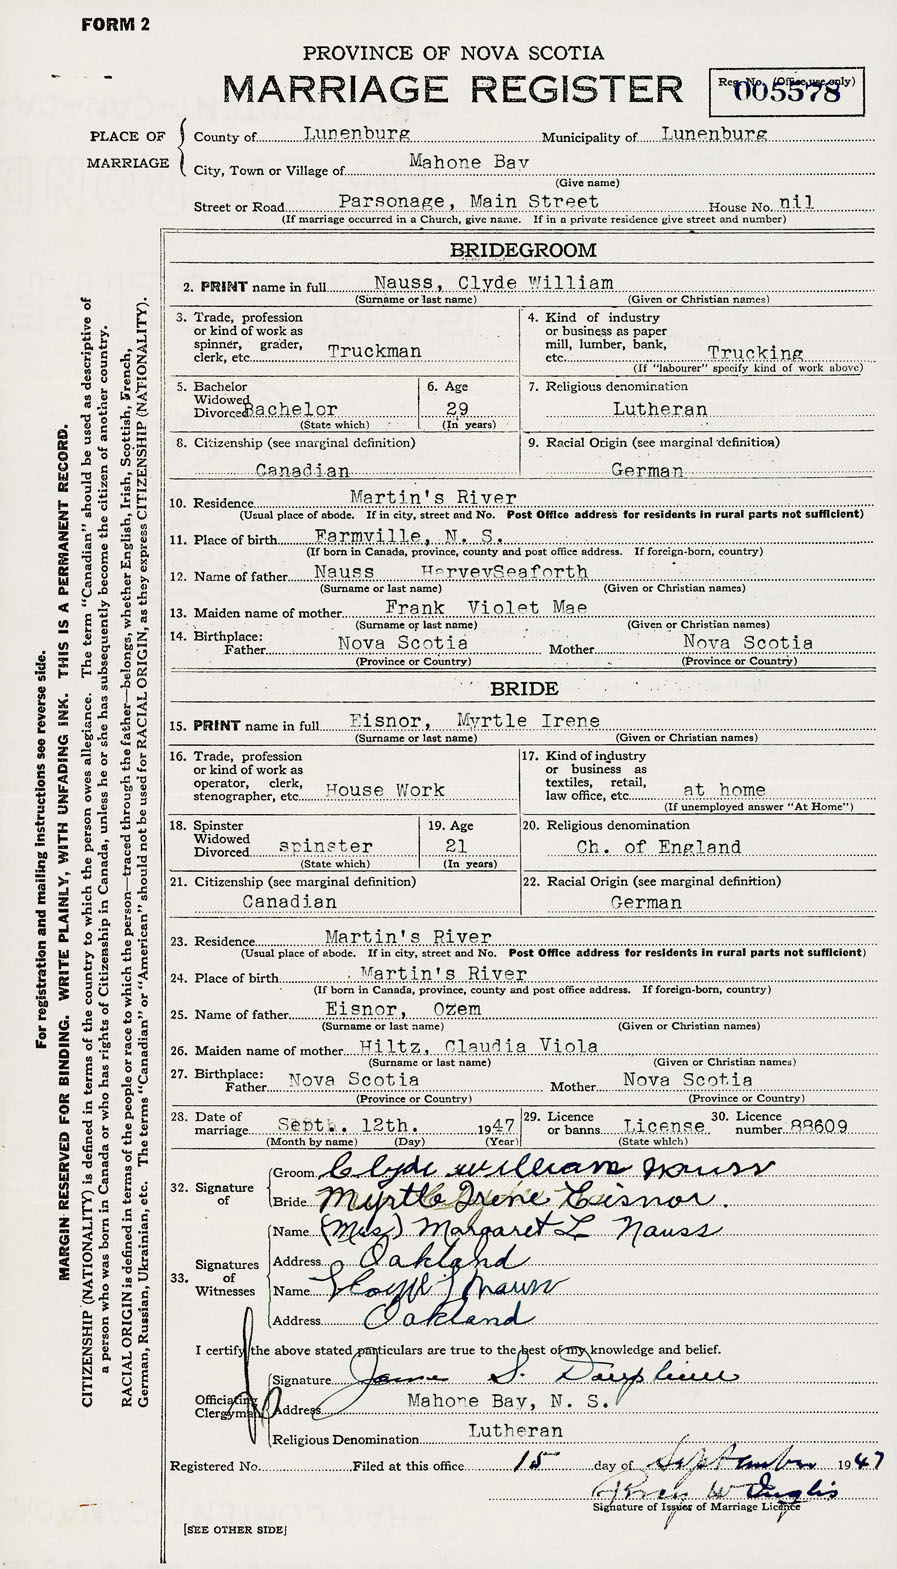 FORM 2
PROVINCE OF NOVA SCOTIA
MARRIAGE REGISTER
Reg. No. (Office use only)
005578
PLACE OF MARRIAGE
County of Lunenburg Municipality of Lunenburg
City, Town or Village of Mahone Bay
(Give name)
Street or Road Parsonage, Main Street House No. nil
(If marriage occurred in a Church, give name. If in a private residence give street and number)
BRIDEGROOM
2. PRINT name in full Nauss, Clyde William
(Surname or last name) (Given or Christian names)
3. Trade, profession
or kind of work as
spinner, grader,
clerk, etc. Truckman
4. Kind of industry
or business as paper
mill, lumber, bank,
etc. Trucking
(If "labourer" specify kind of work above)
5. Bachelor
Widowed
Divorced Bachelor
(State which)
6. Age
29
(In years)
7. Religious denomination
Lutheran
8. Citizenship (see marginal definition)
Canadian
9. Racial Origin (see marginal definition)
German
10. Residence Martin's River
(Usual place of abode. If in city, street and No. Post Office address for residents in rural parts not sufficient)
11. Place of birth Farmville, N. S.
(If born in Canada, province, county and post office address. If foreign-born, country)
12. Name of father Nauss HarveySeaforth
(Surname or last name) (Given or Christian names)
13. Maiden name of mother Frank Violet Mae
(Surname or last name) (Given or Christian names)
14. Birthplace:
Father Nova Scotia Mother Nova Scotia
(Province or Country) (Province or Country)
BRIDE
15. PRINT name in full Eisnor, Myrtle Irene
(Surname or last name) (Given or Christian names)
16. Trade, profession
or kind of work as
operator, clerk,
stenographer, etc. House Work
17. Kind of industry
or business as
textiles, retail,
law office, etc. at home
(If unemployed answer "At Home")
18. Spinster
Widowed
Divorced spinster
(State which)
19. Age
21
(In years)
20. Religious denomination
Ch. of England
21. Citizenship (see marginal definition)
Canadian
22. Racial Origin (see marginal definition)
German
23. Residence Martin's River
(Usual place of abode. If in city, street and No. Post Office address for residents in rural parts not sufficient)
24. Place of birth Martin's River
(If born in Canada, province, county and post office address. If foreign-born, country)
25. Name of father Eisnor, Ozem
(Surname or last name) (Given or Christian names)
26. Maiden name of mother Hiltz, Claudia Viola
(Surname or last name) (Given or Christian names)
27. Birthplace:
Father Nova Scotia Mother Nova Scotia
(Province or Country) (Province or Country)
28. Date of
marriage Sept. 12th. 1947
(Month by name) (Day) (Year)
29. Licence
or banns License
(State which)
30. Licence
number 88609
32. Signature of
Groom Clyde William Nauss
Bride Myrtle Irene Eisnor.
33. Signatures of Witnesses
Name (Mrs) Margaret L Nauss
Address Oakland
Name Lloyd Nauss
Address Oakland
I certify the above stated particulars are true to the best of my knowledge and belief.
Officiating Clergyman
Signature James S. Dauphinee
Address Mahone Bay, N. S.
Religious Denomination Lutheran
Registered No. Filed at this office 15 day of September 1947
Inglis
Signature of Issuer of Marriage Licence
[SEE OTHER SIDE]
For registration and mailing instructions see reverse side.
MARGIN RESERVED FOR BINDING. WRITE PLAINLY, WITH UNFADING INK. THIS IS A PERMANENT RECORD.
CITIZENSHIP (NATIONALITY) is defined in terms of the country to which the person owes allegiance. The term "Canadian" should be used as descriptive of
a person who was born in Canada or who has rights of Citizenship in Canada, unless he or she has subsequently become the citizen of another country.
RACIAL ORIGIN is defined in terms of the people or race to which the person—traced through the father—belongs, whether English, Irish, Scottish, French,
German, Russian, Ukrainian, etc. The terms "Canadian" or "American" should not be used for RACIAL ORIGIN, as they express CITIZENSHIP (NATIONALITY).